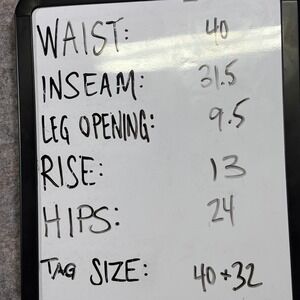 WAIST: 40
INSEAM: 31.5
LEG OPENING: 9.5
RISE: 13
HIPS: 24
TAG SIZE: 40+32